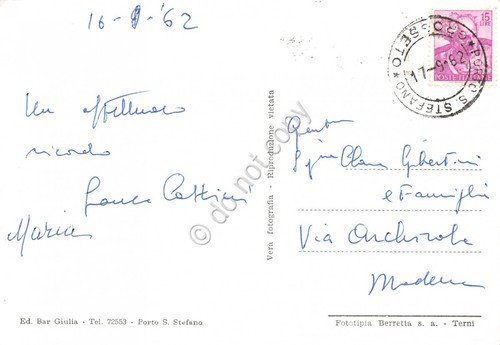 16-9-'62
Un affettuoso
ricordo
Franca
Maria
Ed. Bar Giulia - Tel. 72553 - Porto S. Stefano
Vera fotografia - Riproduzione vietata
15 LIRE
POSTE
PORTO S. STEFANO * GROSSETO *
17-9-62
Gent
Sig.na Clara Gibertini
e Famiglia
Via Archirola
Modena
Fototipia Berretta s. a. - Terni
do not copy